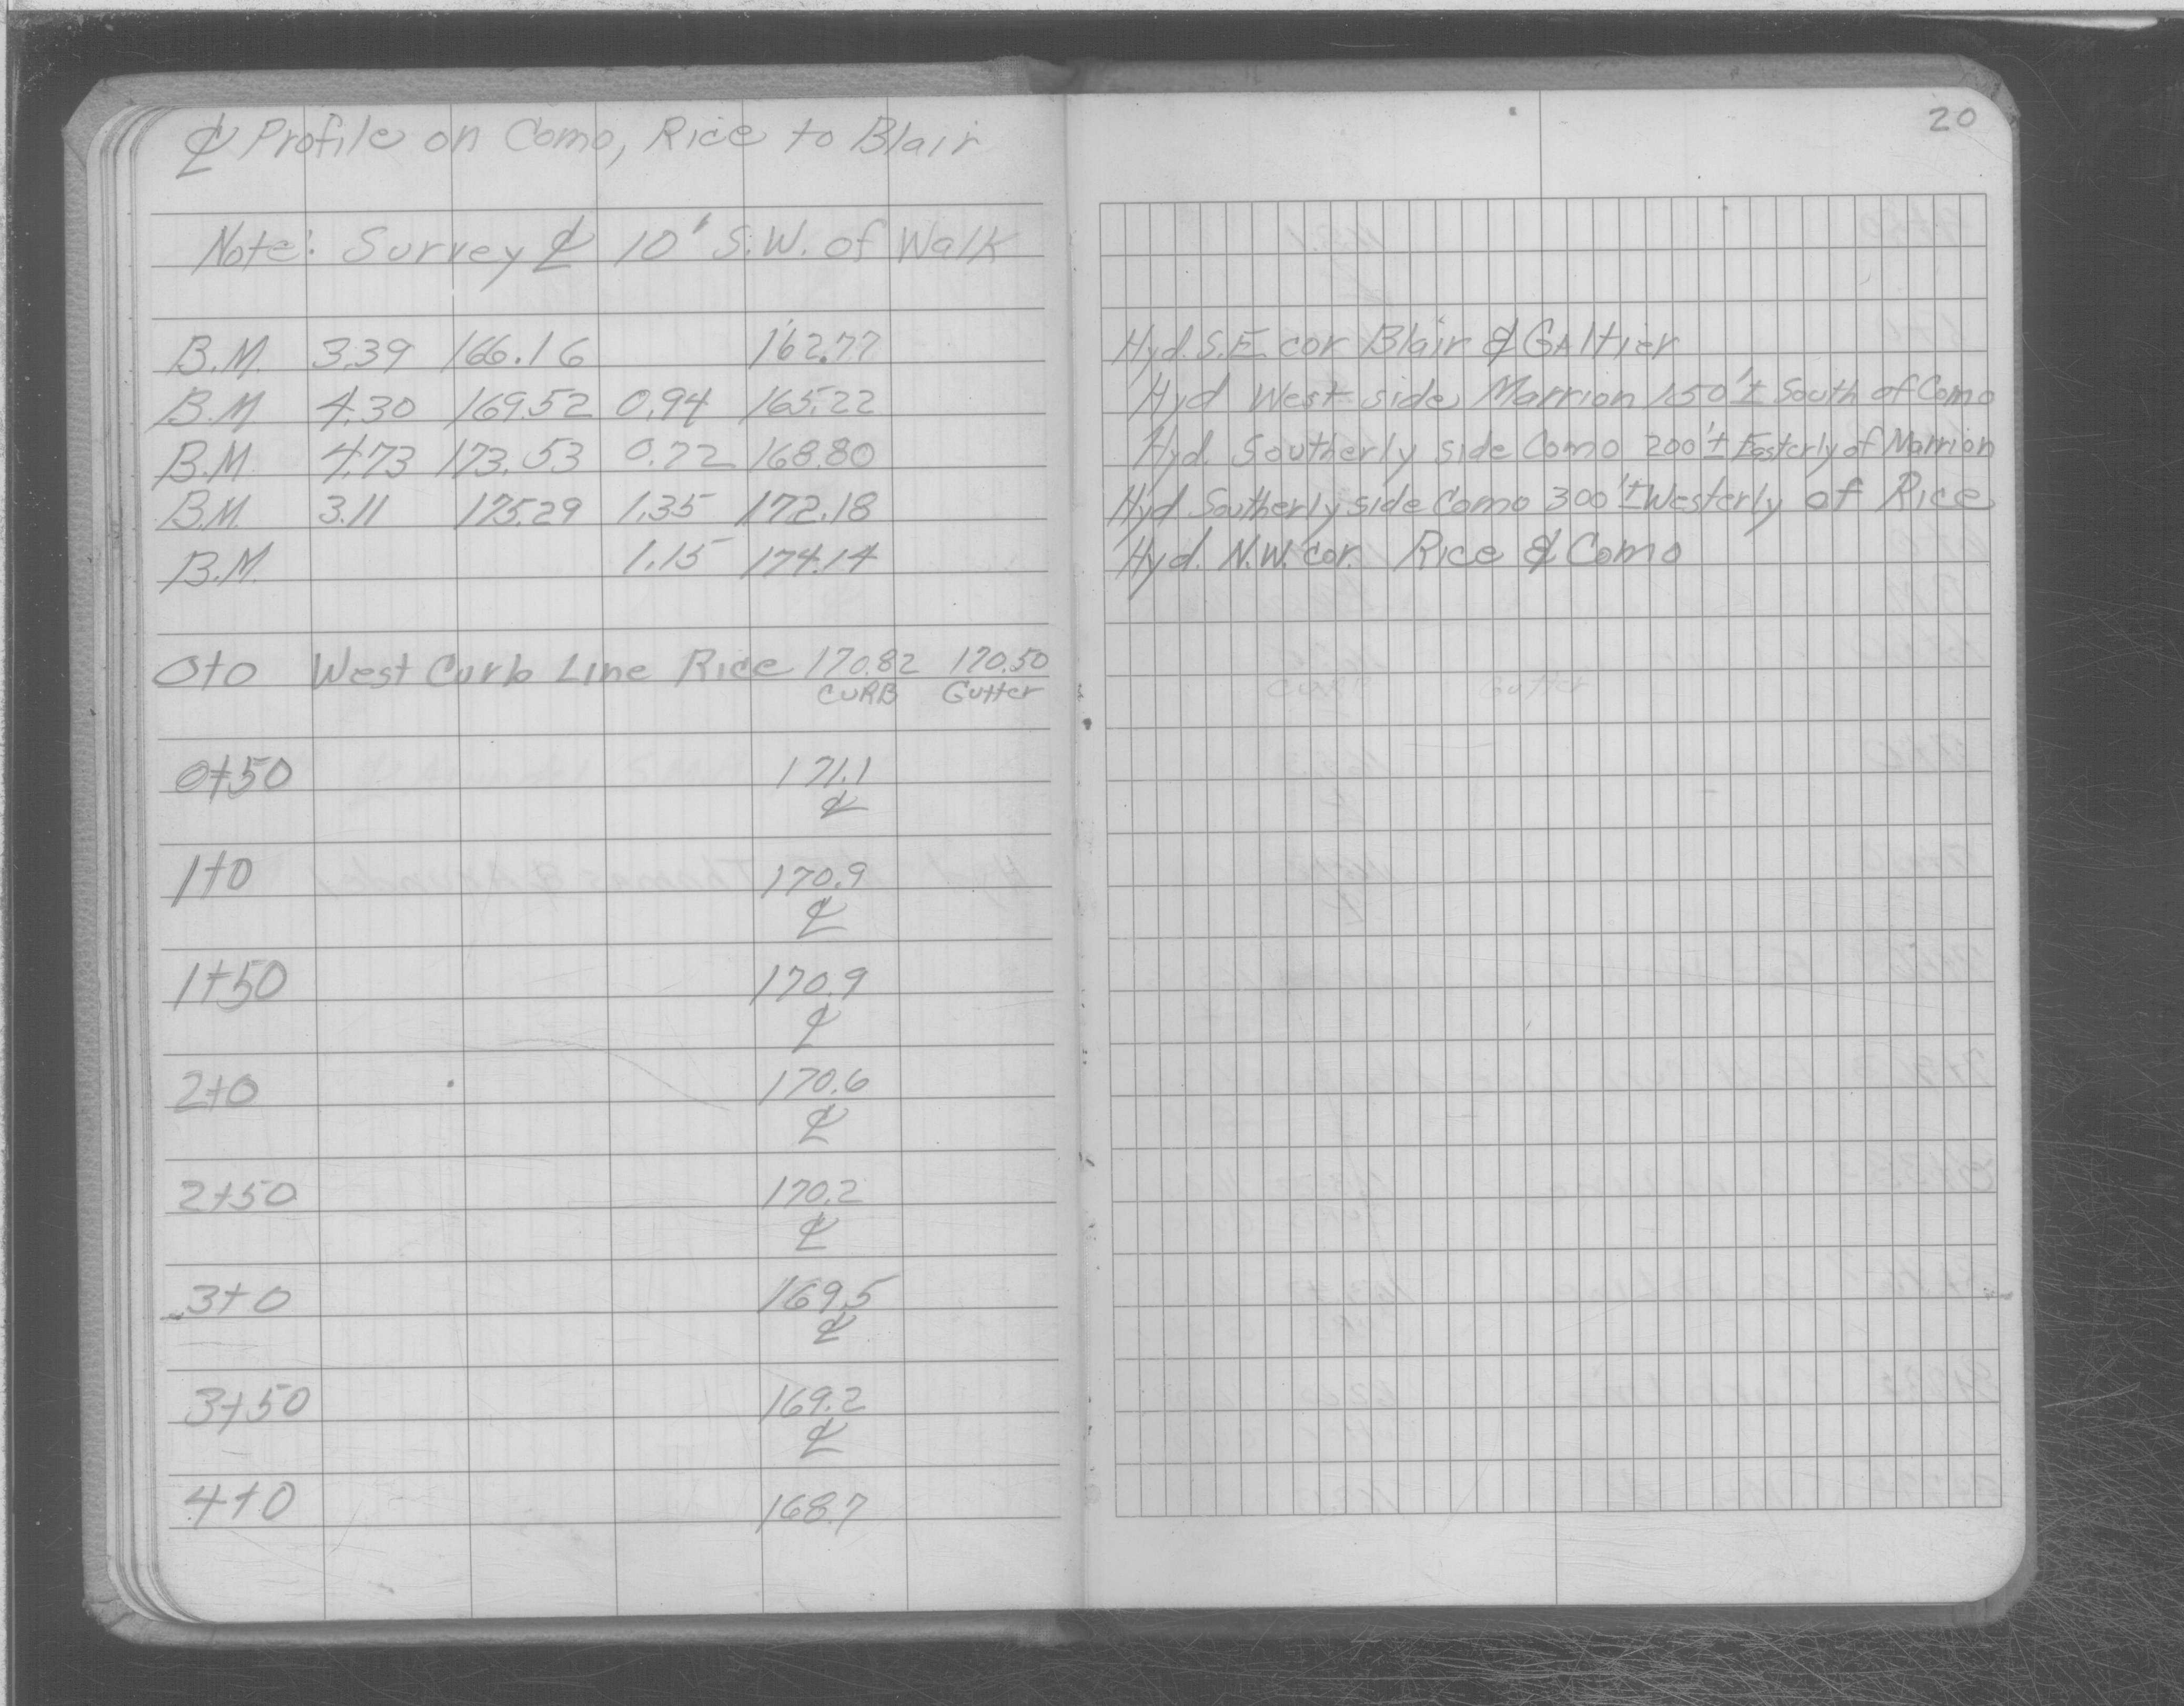 ℄ Profile on Como, Rice to Blair
Note: Survey ℄ 10' S.W. of Walk
B.M. 3.39 166.16 162.77
B.M. 4.30 169.52 0.94 165.22
B.M. 4.73 173.53 0.72 168.80
B.M. 3.11 175.29 1.35 172.18
B.M. 1.15 174.14
0+0 West Curb Line Rice 170.82 170.50
CURB Gutter
0+50 171.1
℄
1+0 170.9
℄
1+50 170.9
℄
2+0 170.6
℄
2+50 170.2
℄
3+0 169.5
℄
3+50 169.2
℄
4+0 168.7
20
Hyd. S.E. cor Blair & Galtier
Hyd West side Marrion 150'± South of Como
Hyd. Southerly side Como 200'± Easterly of Marrion
Hyd Southerly side Como 300'± Westerly of Rice
Hyd. N.W. cor. Rice & Como